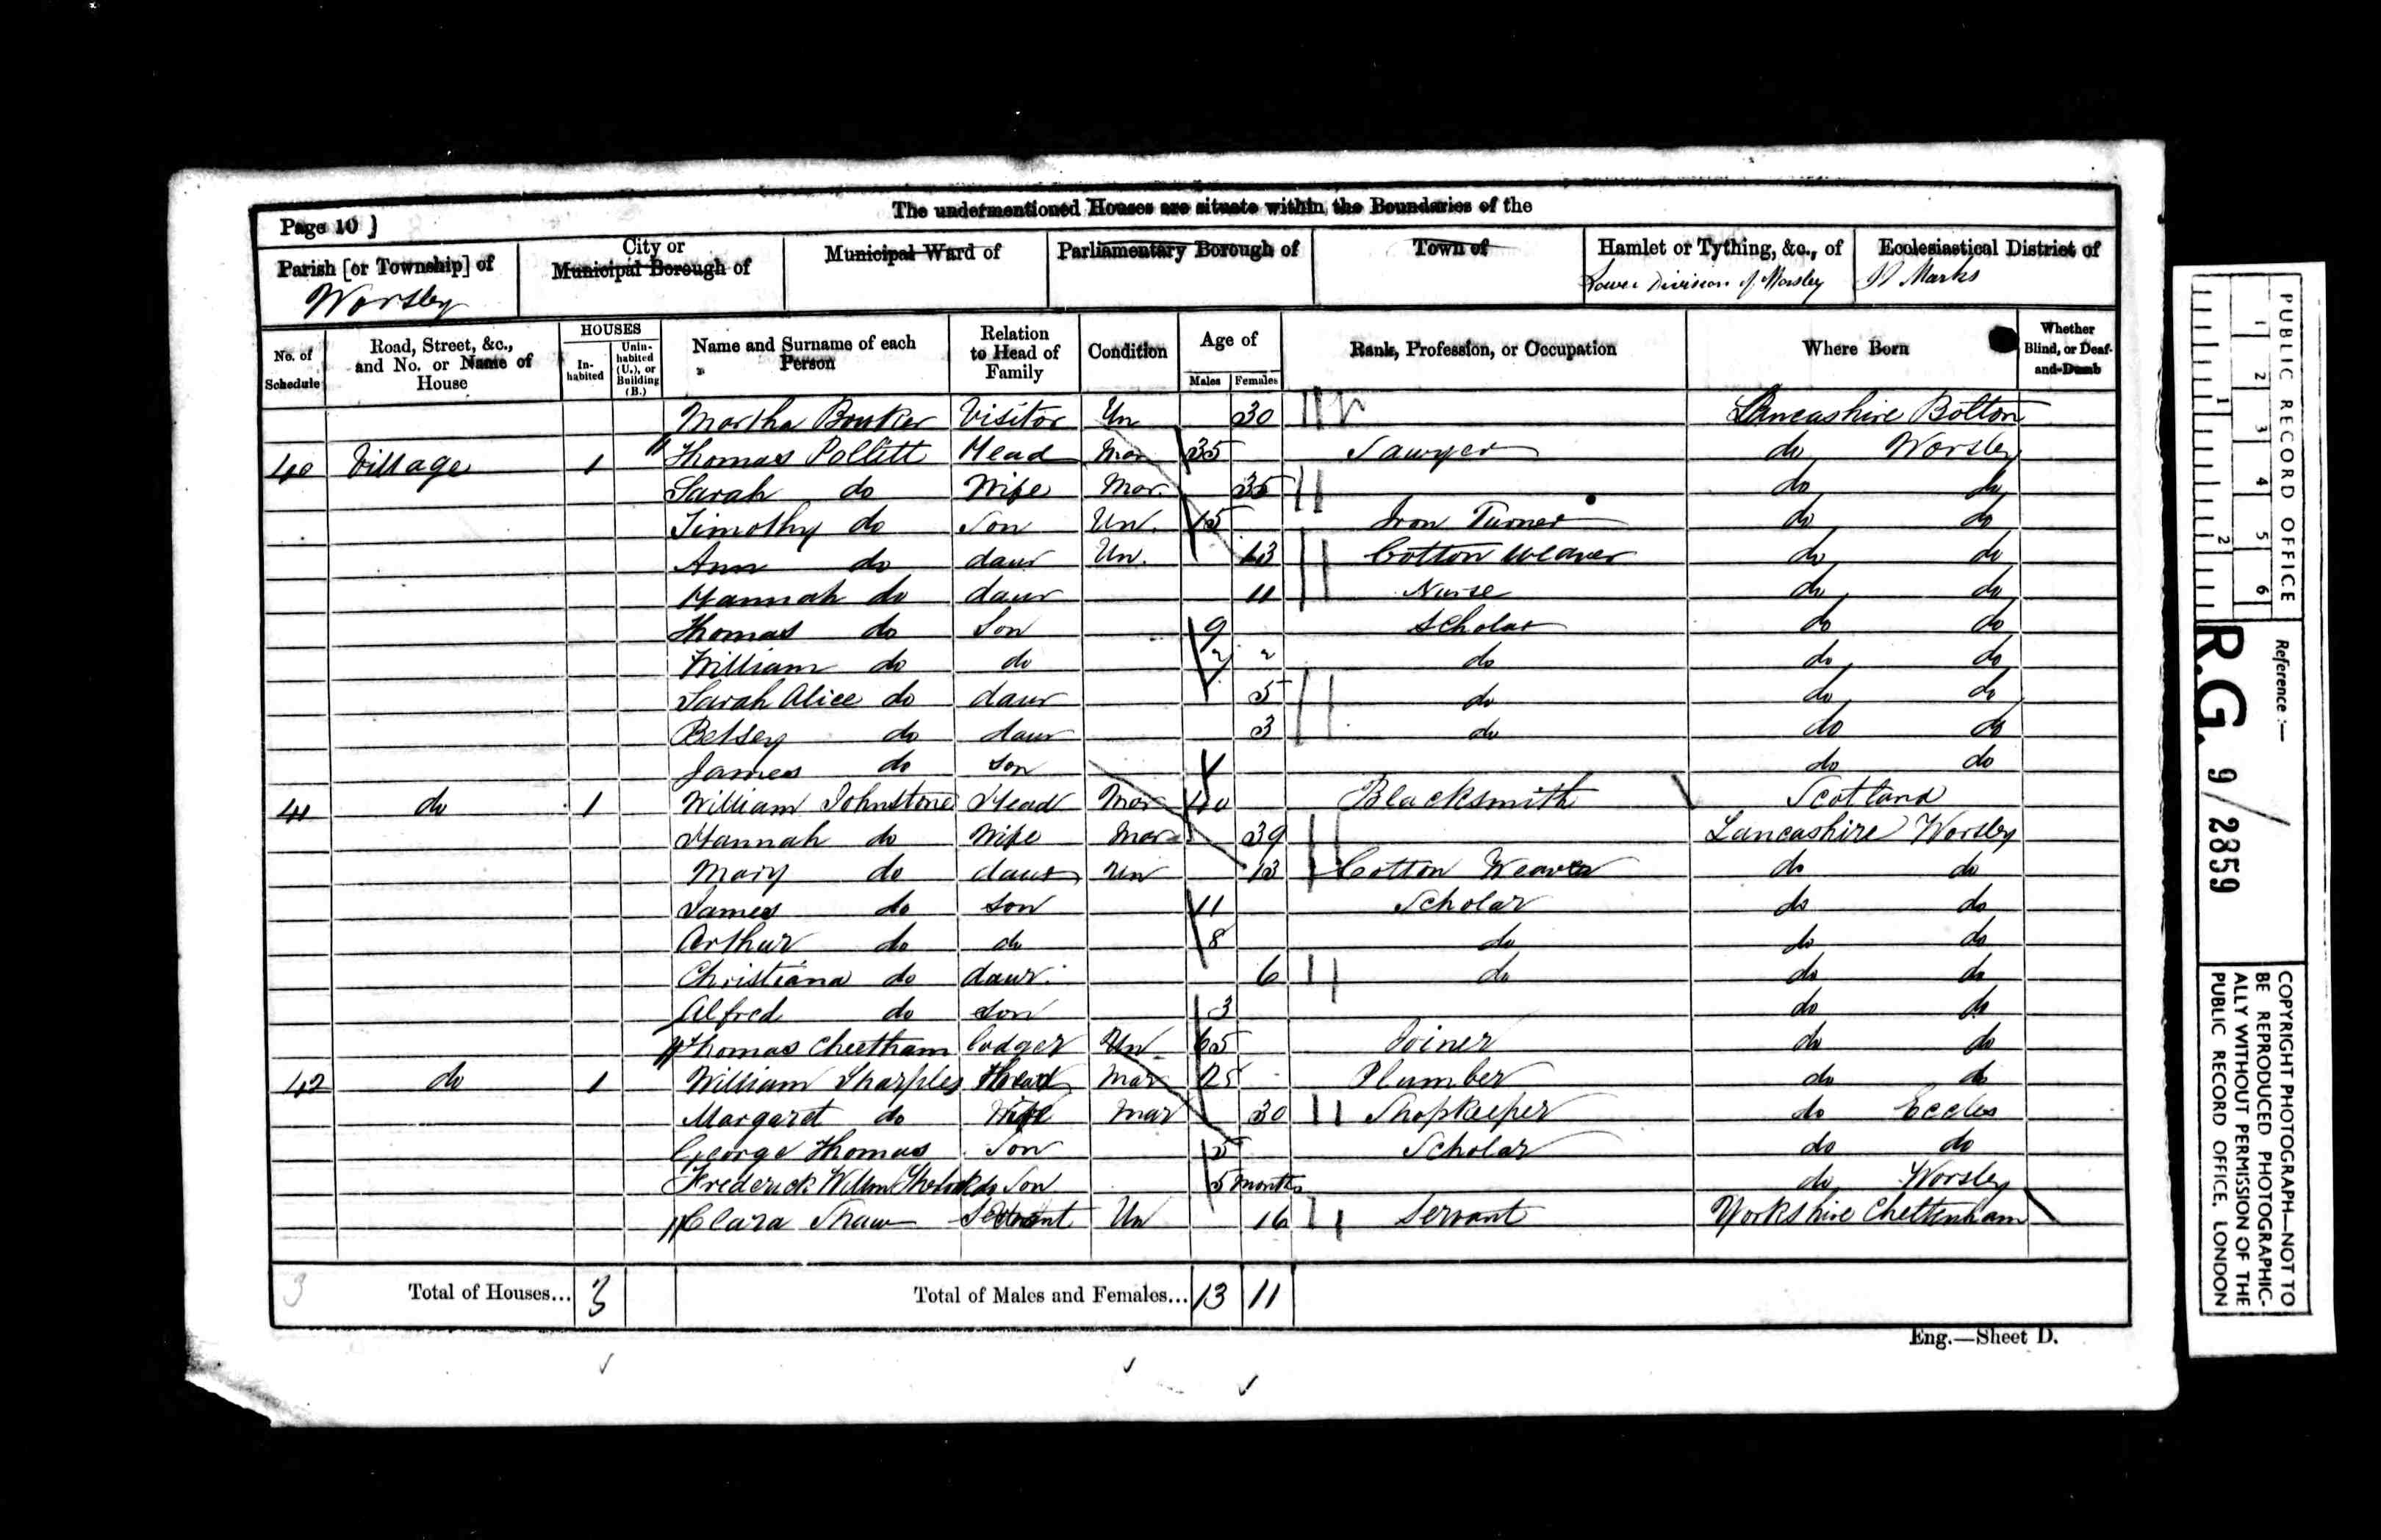 The undermentioned Houses are situate within the Boundaries of the
Page 10 ]
Parish [or Township] of
Worsley
City or Municipal Borough of
Municipal Ward of
Parliamentary Borough of
Town of
Hamlet or Tything, &c., of
Lower Division of Worsley
Ecclesiastical District of
St Marks
No. of Schedule
Road, Street, &c., and No. or Name of House
HOUSES
In-habited
Unin-habited (U.), or Building (B.)
Name and Surname of each Person
Relation to Head of Family
Condition
Age of
Males
Females
Rank, Profession, or Occupation
Where Born
Whether Blind, or Deaf-and-Dumb
Martha Visitor Un 30 Lancashire Bolton
40 Village 1 Thomas Pollitt Head Mar 35 Sawyer do Worsley
Sarah do Wife Mar. 35 do do
Timothy do Son Un. 15 Iron Turner do do
Ann do daur Un. 13 Cotton Weaver do do
Hannah do daur 11 Nurse do do
Thomas do Son 9 Scholar do do
William do do 7 do do do
Sarah Alice do daur 5 do do do
Betsey do daur 3 do do do
James do son do do
41 do 1 William Johnstone Head Mar 40 Blacksmith Scotland
Hannah do Wife Mar 39 Lancashire Worsley
Mary do daur Un 13 Cotton Weaver do do
James do son 11 Scholar do do
Arthur do do 8 do do do
Christiana do daur. 6 do do do
Alfred do son 3 do do
Thomas Cheetham lodger Un 65 Joiner do do
42 do 1 William Sharples Head Mar 25 Plumber do do
Margaret do Wife Mar 30 Shopkeeper do Eccles
George Thomas Son 5 Scholar do do
Frederick do Son 5 months do Worsley
Clara Shaw Servant Un 16 Servant Yorkshire Cheltenham
3 Total of Houses... 3
Total of Males and Females... 13 11
Eng.—Sheet D.
PUBLIC RECORD OFFICE
1 2 3 4 5 6
1 2
Reference :—
R.G. 9/2859
COPYRIGHT PHOTOGRAPH—NOT TO
BE REPRODUCED PHOTOGRAPHIC-
ALLY WITHOUT PERMISSION OF THE
PUBLIC RECORD OFFICE, LONDON